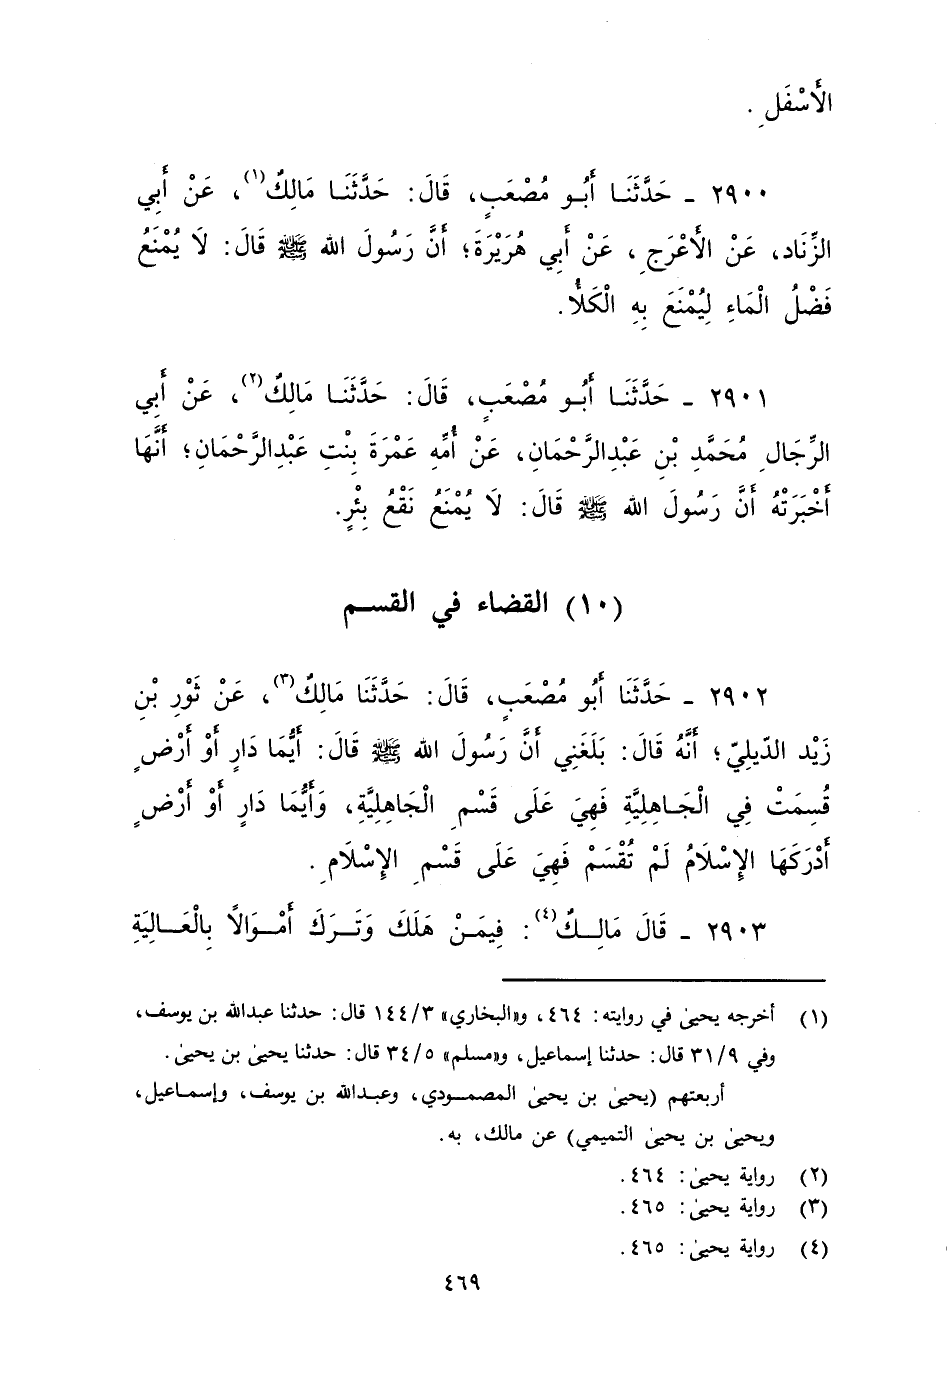 الأَسْفَلِ.
٢٩٠٠ ـ حَدَّثَنَا أَبُو مُصْعَبٍ، قَالَ: حَدَّثَنَا مَالِكٌ(١)، عَنْ أَبِي
الزِّنَاد، عَنْ الأَعْرَجِ، عَنْ أَبِي هُرَيْرَةَ؛ أَنَّ رَسُولَ الله ﷺ قَالَ: لَا يُمْنَعُ
فَضْلُ الْمَاءِ لِيُمْنَعَ بِهِ الْكَلأُ.
٢٩٠١ ـ حَدَّثَنَا أَبُو مُصْعَبٍ، قَالَ: حَدَّثَنَا مَالِكٌ(٢)، عَنْ أَبِي
الرِّجَالِ مُحَمَّدِ بْنِ عَبْدِالرَّحْمَانِ، عَنْ أُمِّهِ عَمْرَةَ بِنْتِ عَبْدِالرَّحْمَانِ؛ أَنَّهَا
أَخْبَرَتْهُ أَنَّ رَسُولَ الله ﷺ قَالَ: لَا يُمْنَعُ نَقْعُ بِئْرٍ.
(١٠) القضاء في القسم
٢٩٠٢ ـ حَدَّثَنَا أَبُو مُصْعَبٍ، قَالَ: حَدَّثَنَا مَالِكٌ(٣)، عَنْ ثَوْرِ بْنِ
زَيْد الدّيلِيّ؛ أَنَّهُ قَالَ: بَلَغَنِي أَنَّ رَسُولَ الله ﷺ قَالَ: أَيُّمَا دَارٍ أَوْ أَرْضٍ
قُسِمَتْ فِي الْجَاهِلِيَّةِ فَهِيَ عَلَى قَسْمِ الْجَاهِلِيَّةِ، وَأَيُّمَا دَارٍ أَوْ أَرْضٍ
أَدْرَكَهَا الإِسْلَامُ لَمْ تُقْسَمْ فَهِيَ عَلَى قَسْمِ الإِسْلَامِ.
٢٩٠٣ ـ قَالَ مَالِكٌ(٤): فِيمَنْ هَلَكَ وَتَرَكَ أَمْوَالًا بِالْعَالِيَةِ
(١) أخرجه يحيىٰ في روايته: ٤٦٤، و«البخاري» ١٤٤/٣ قال: حدثنا عبدالله بن يوسف،
وفي ٣١/٩ قال: حدثنا إسماعيل، و«مسلم» ٣٤/٥ قال: حدثنا يحيىٰ بن يحيىٰ.
أربعتهم (يحيىٰ بن يحيىٰ المصمودي، وعبدالله بن يوسف، وإسماعيل،
ويحيىٰ بن يحيىٰ التميمي) عن مالك، به.
(٢) رواية يحيىٰ: ٤٦٤.
(٣) رواية يحيىٰ: ٤٦٥.
(٤) رواية يحيىٰ: ٤٦٥.
٤٦٩